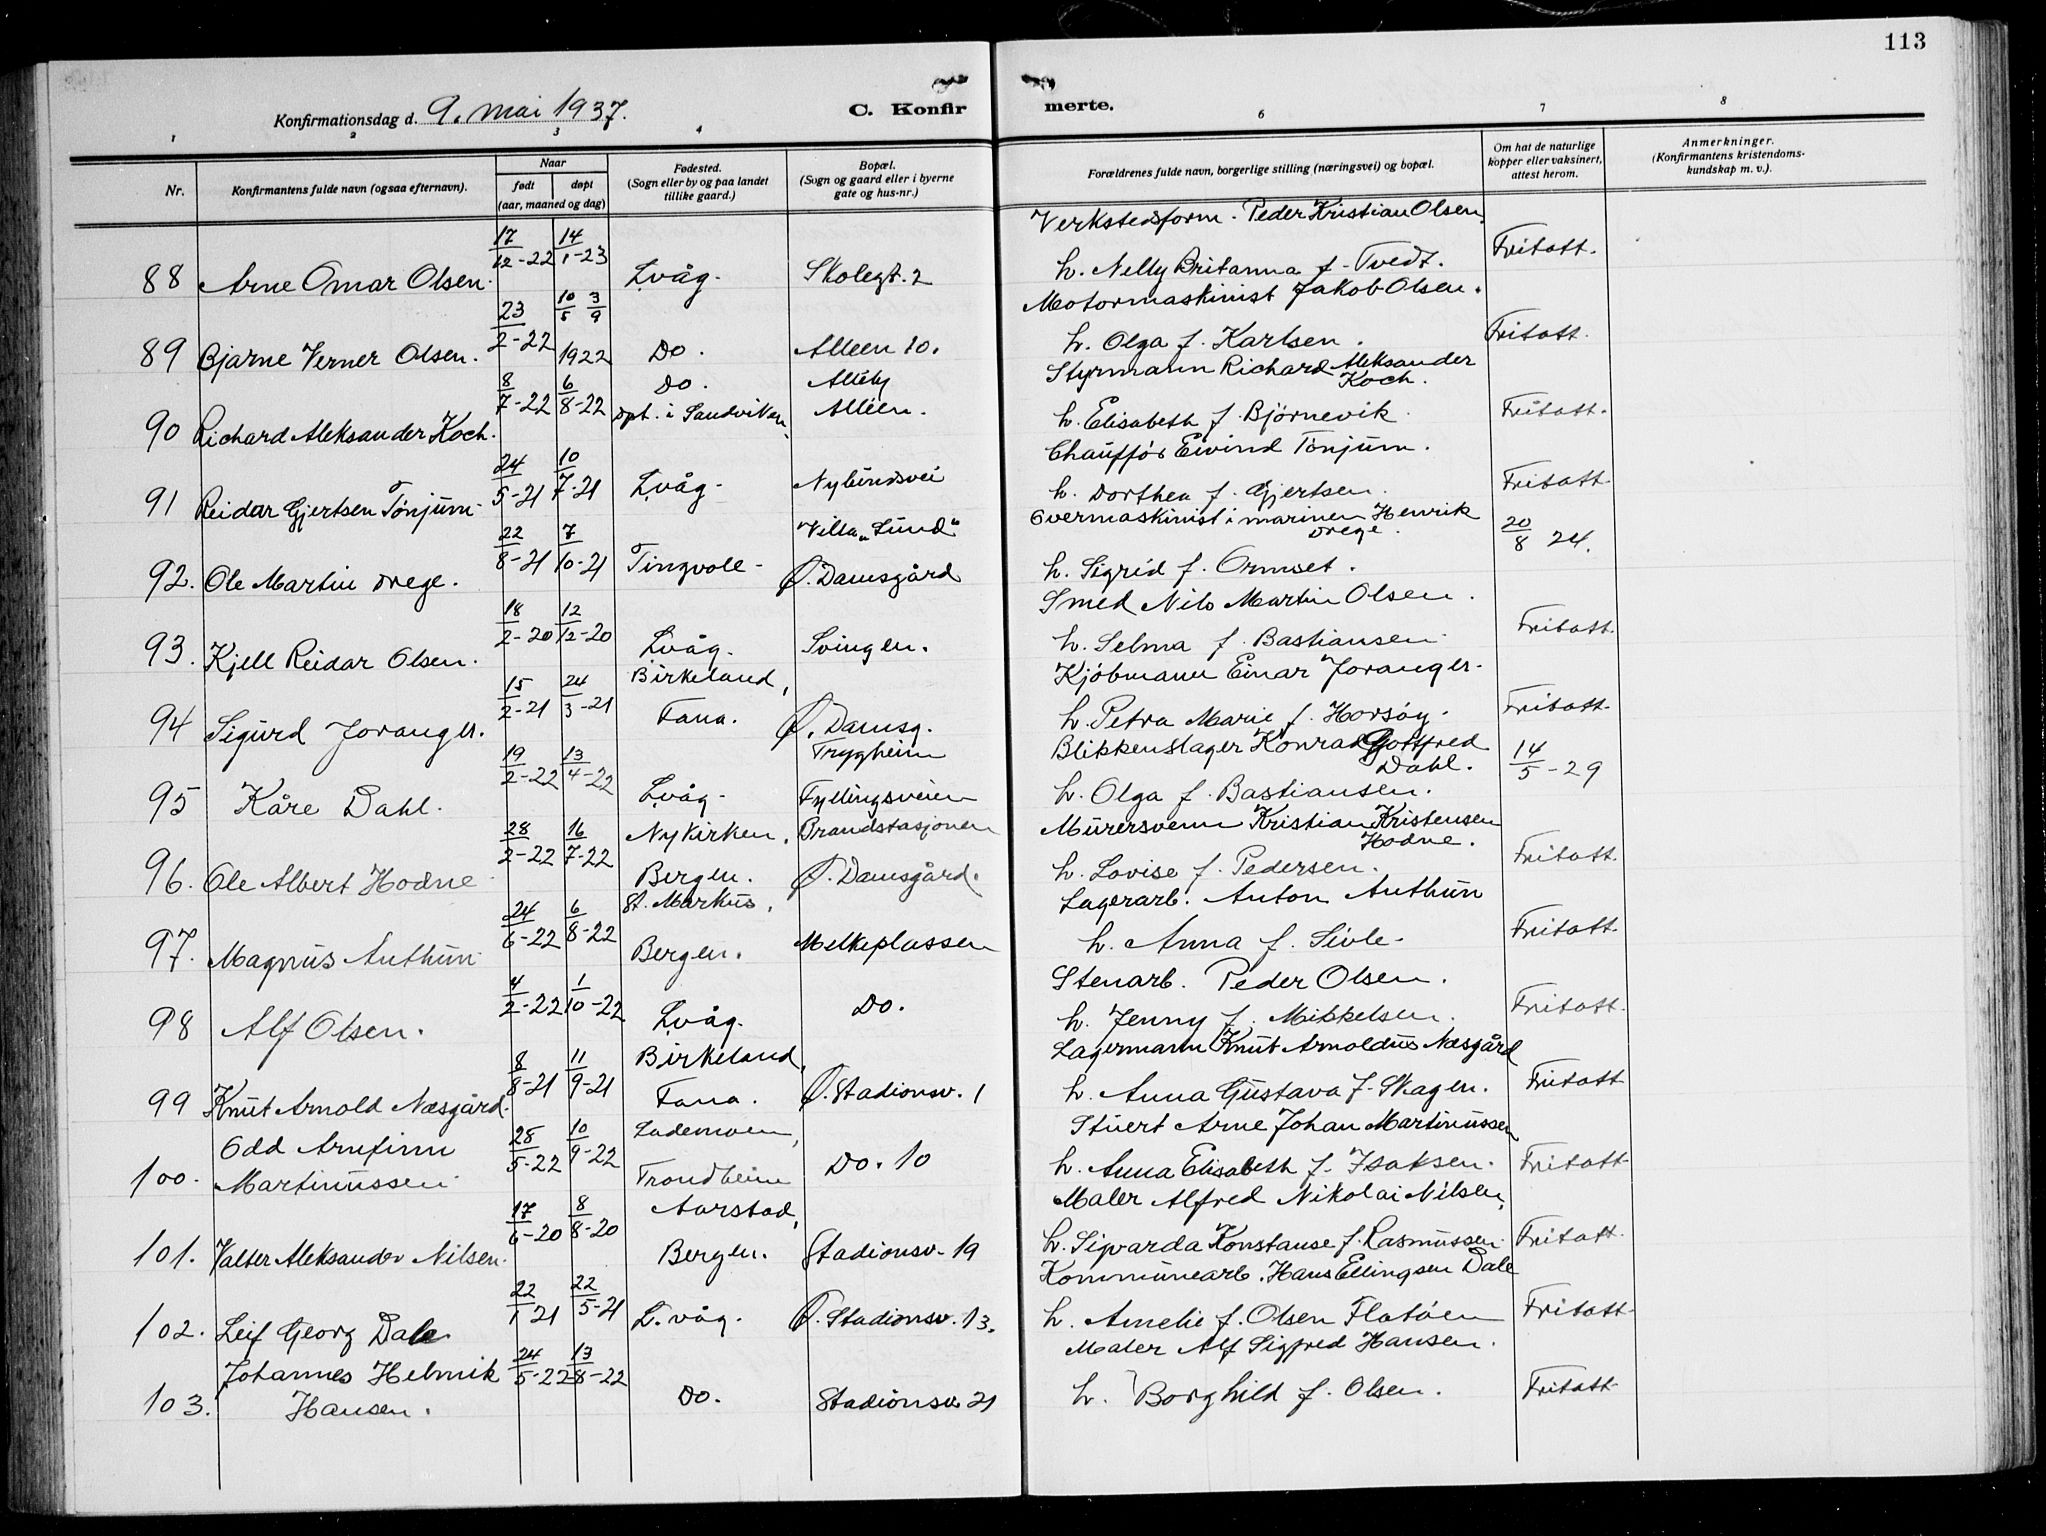 113
Konfirmationsdag d. 9. mai 1937.
C. Konfir merte.
1 2 3 4 6 7 8
Nr.
Konfirmantens fulde navn (ogsaa efternavn).
Naar
født døpt
(aar, maaned og dag)
Fødested.
(Sogn eller by og paa landet
tillike gaard.)
Bopæl.
(Sogn og gaard eller i byerne
gate og hus-nr.)
Forældrenes fulde navn, borgerlige stilling (næringsvei) og bopæl.
Om hat de naturlige
kopper eller vaksinert,
attest herom.
Anmerkninger.
(Konfirmantens kristendoms-
kundskap m. v.).
Verkstedsform. Peder Kristian Olsen.
88 Arne Omar Olsen. 17/12-22 14/1-23 Lvåg. Skolegt. 2 h. Nelly Britanna f. Tvedt. Fritatt.
Motormaskinist Jakob Olsen.
89 Bjarne Verner Olsen. 23/2-22 10/5 3/9 1922 Do. Alleen 10. h. Olga f. Karlsen. Fritatt.
Do. Alléby Styrmann Richard Aleksander
Koch.
90 Richard Aleksander Koch. 8/7-22 6/8-22 dpt. i Sandviken. Alléen. h. Elisabeth f. Bjørnevik. Fritatt.
Chauffør Eivind Tønjum.
91 Reidar Gjertsen Tønjum. 24/5-21 10/7-21 Lvåg. Nylundsvei h. Dorthea f. Gjertsen. Fritatt.
Villa „Lund" Overmaskinist i marinen Henrik
Drege.
92. Ole Martin Drege. 22/8-21 7/10-21 Tingvoll Ø. Damsgård h. Sigrid f. Ormset. 20/8 24.
Smed Nils Martin Olsen.
93. Kjell Reidar Olsen. 18/2-20 12/12-20 Lvåg. Svingen. h. Selma f. Bastiansen. Fritatt.
Birkeland, Kjøbmann Einar Joranger.
94 Sigurd Joranger. 15/2-21 24/3-21 Fana. Ø. Damsg. h. Petra Marie f. Horsøy. Fritatt.
Trygheim Blikkenslager Konrad Gottfred
Dahl.
95 Kåre Dahl. 19/2-22 13/4-22 Lvåg. Fyllingsveien h. Olga f. Bastiansen. 14/5-29
Nykirken, Brandstasjonen Murersvenn Kristian Kristensen
Hodne.
96. Ole Albert Hodne 28/2-22 16/7-22 Bergen. Ø. Damsgård. h. Lovise f. Pedersen. Fritatt.
St. Markus, Lagerarb. Anton Anthun
97. Magnus Anthun 24/6-22 6/8-22 Bergen. Melkeplassen h. Anna f. Sivle. Fritatt.
Stenarb. Peder Olsen.
98 Alf Olsen. 4/2-22 1/10-22 Lvåg. Do. h. Jenny f. Mikkelsen. Fritatt.
Birkeland, Lagermann Knut Arnoldus Næsgård
99 Knut Arnold Næsgård. 8/8-21 11/9-21 Fana. Ø. Stadionsv. 1 h. Anna Gustava f. Skagen. Fritatt
Odd Arnfinn Lademoen, Stuert Arne Johan Martinussen
100. Martinussen 28/5-22 10/9-22 Trondheim Do. 10 h. Anna Elisabeth f. Isaksen. Fritatt
Aarstad, Maler Alfred Nikolai Nilsen,
101. Valter Aleksander Nilsen. 17/6-20 8/8-20 Bergen. Stadionsv. 19 h. Sigvarda Konstanse f. Rasmussen. Fritatt.
Kommunearb. Hans Ellingsen Dale
102. Leif Georg Dale 22/1 21 22/5-21 L.våg. Ø. Stadionsv. 13. h. Amelie f. Olsen Flatøen Fritatt
Johannes Helmik Maler Alf Sigfred Hansen.
103. Hansen. 24/5-22 13/8-22 Do. Stadionsv. 21 h. Borghild f. Olsen. Fritatt